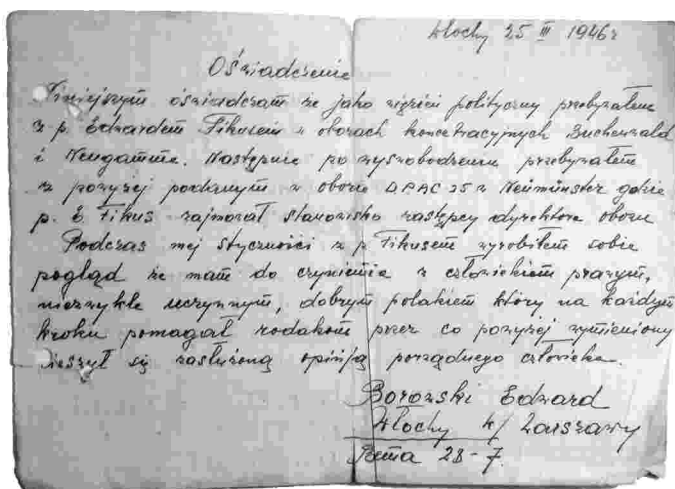 Włochy 25 III 1946r
Oświadczenie
Niniejszym oświadczam że jako więzień polityczny przebywałem
z p. Edwardem Fikusem w obozach koncentracyjnych Buchenwald
i Neugamme. Następnie po wyswobodzeniu przebywałem
z powyżej podanym w obozie DPAC 25 w Neiminster gdzie
p. E Fikus zajmował stanowisko zastępcy dyrektora obozu
Podczas mej styczności z p Fikusem wyrobiłem sobie
pogląd że mam do czynienia z człowiekiem prawym,
niezwykle uczynnym, dobrym polakiem który na każdym
kroku pomagał rodakom przez co powyżej wymieniony
cieszył się zasłużoną opinją porządnego człowieka.
Borowski Edward
Włochy k/Warszawy
28-7.